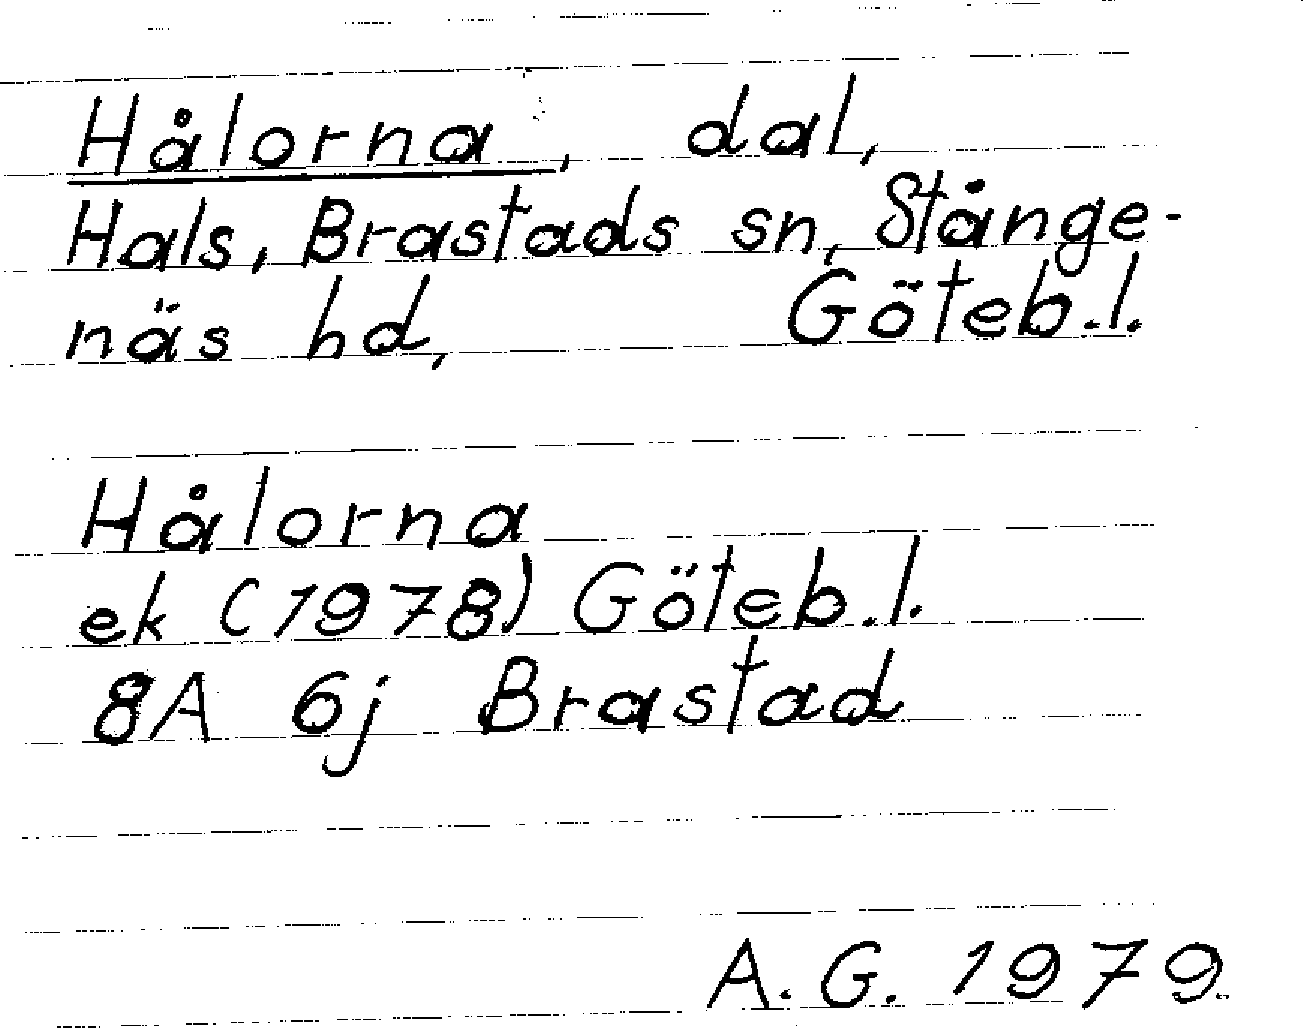 Hålorna, dal,
Hals, Brastads sn, Stånge-
näs hd, Göteb.l.
Hålorna
ek (1978) Göteb.l.
8A 6j Brastad
A.G. 1979.